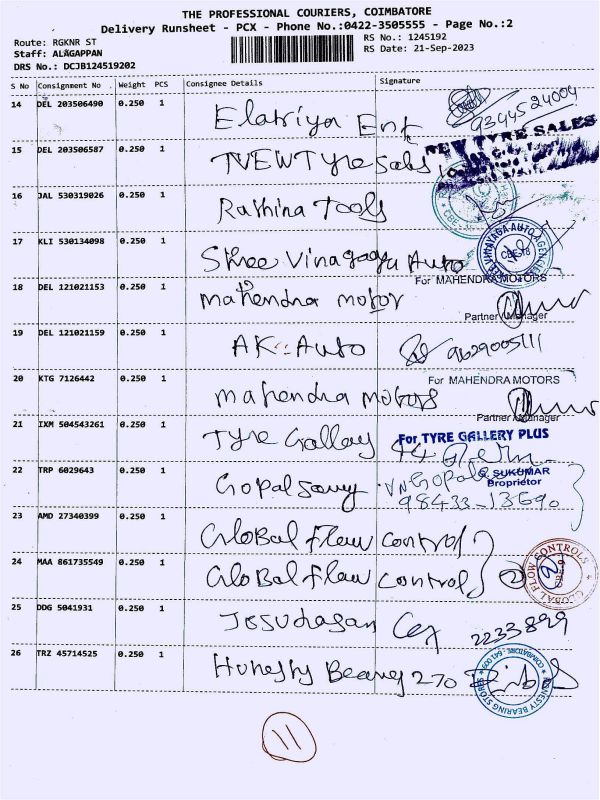 THE PROFESSIONAL COURIERS, COIMBATORE
Delivery Runsheet - PCX - Phone No.:0422-3505555 - Page No.:2
Route: RGKNR ST RS No.: 1245192
Staff: ALAGAPPAN RS Date: 21-Sep-2023
DRS No.: DCJB124519202
S No Consignment No Weight PCS Consignee Details Signature
14 DEL 203506490 0.250 1 Elatriya Ent 9344524004
15 DEL 203506587 0.250 1 NEW Tyre Sales NEW TYRE SALES
16 JAL 530319026 0.250 1 Rathina Tools
17 KLI 530134098 0.250 1 Shree Vinagaya Auto
For MAHENDRA MOTORS
18 DEL 121021153 0.250 1 Mahendra motor
Partner / Manager
19 DEL 121021159 0.250 1 AK Auto 9629005111
20 KTG 7126442 0.250 1 mahendra motors For MAHENDRA MOTORS
Partner / Manager
21 IXM 504543261 0.250 1 Tyre Gallay For TYRE GALLERY PLUS
22 TRP 6029643 0.250 1 Gopalsamy VN Gopal SUKUMAR
Proprietor
98433-13690
23 AMD 27340399 0.250 1 Global flow control
24 MAA 861735549 0.250 1 Global flow control 2 GLOBAL FLOW CONTROLS
25 DDG 5041931 0.250 1 Jesudasan Cey 2233899
26 TRZ 45714525 0.250 1 Honesty Bearing 270 HONESTY BEARING STORES COIMBATORE
11